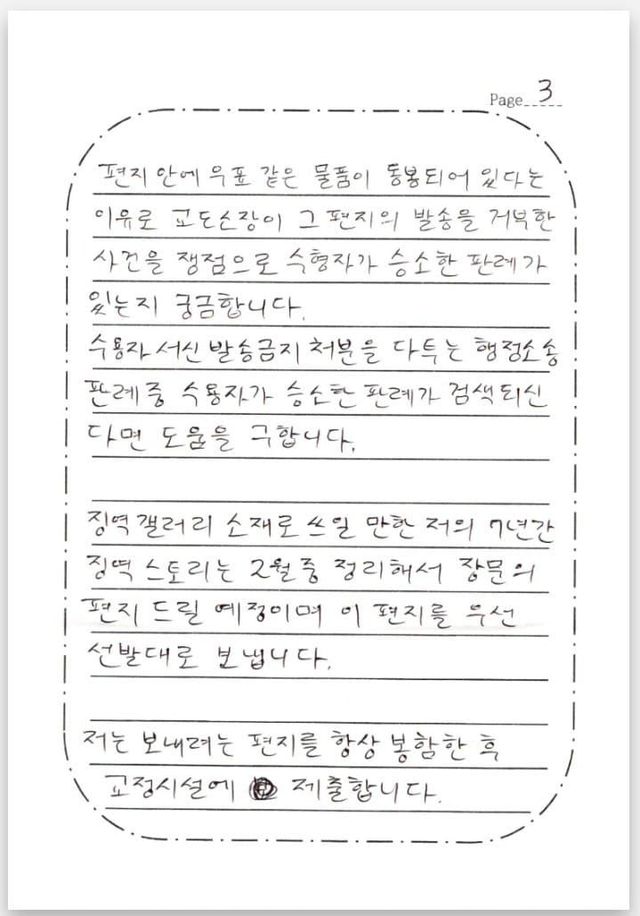 Page 3
편지 안에 우표 같은 물품이 동봉되어 있다는
이유로 교도소장이 그 편지의 발송을 거부한
사건을 쟁점으로 수형자가 승소한 판례가
있는지 궁금합니다.
수용자 서신 발송금지 처분을 다투는 행정소송
판례 중 수용자가 승소한 판례가 검색되신
다면 도움을 구합니다.
징역갤러리 소재로 쓰일 만한 저의 7년간
징역 스토리는 2월 중 정리해서 장문의
편지 드릴 예정이며 이 편지를 우선
선발대로 보냅니다.
저는 보내려는 편지를 항상 봉함한 후
교정시설에 제출합니다.